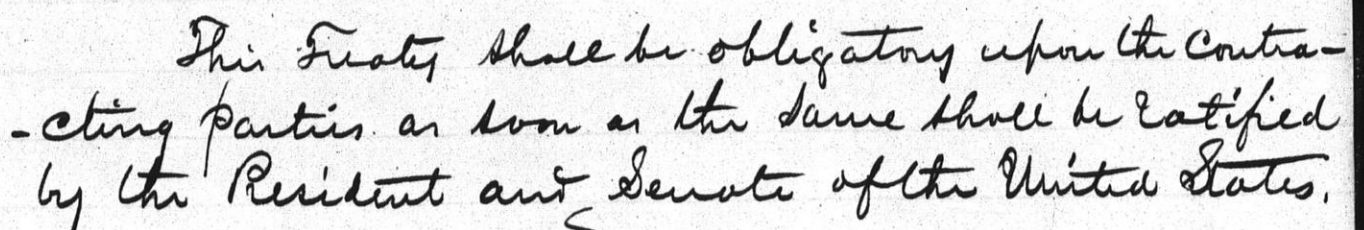 This Treaty shall be obligatory upon the Contra-
-cting parties as soon as the same shall be ratified
by the President and Senate of the United States.